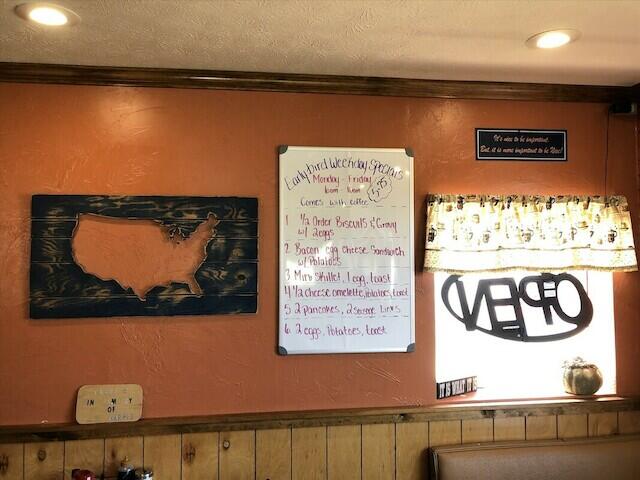 It's nice to be important.
But, it is more important to be Nice!
Early bird Weekday Specials
Monday - Friday
Comes with coffee
1 1/2 Order Biscuits & Gravy
w/ 2 eggs
2 Bacon egg cheese Sandwich
w/ Potatoes
3 Mini Skillet, 1 egg, toast
4 1/2 cheese omelette, Potatoes, toast
5 2 pancakes, 2 sausage Links
6 2 eggs, Potatoes, toast
OPEN
IT IS WHAT IT IS
IN
OF